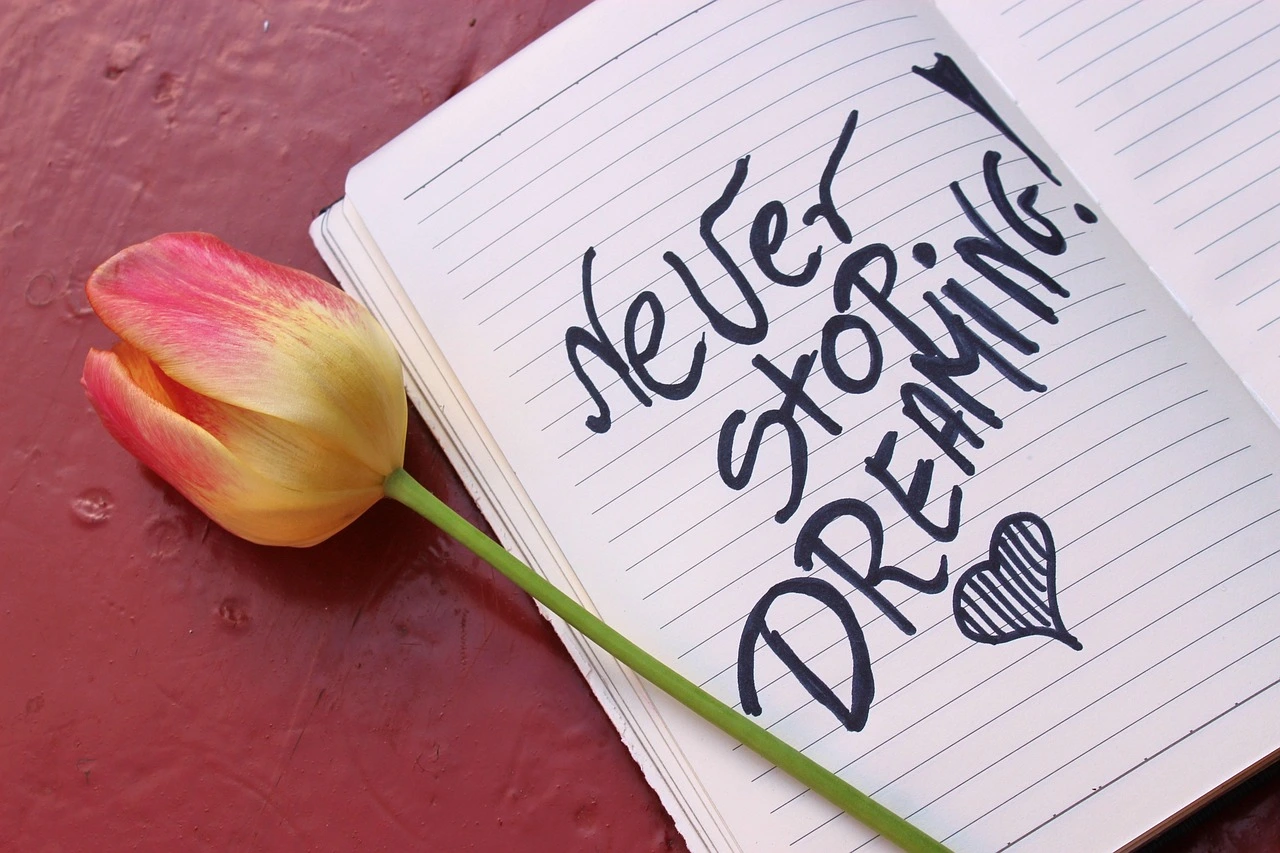 Never
Stop
DREAMING!